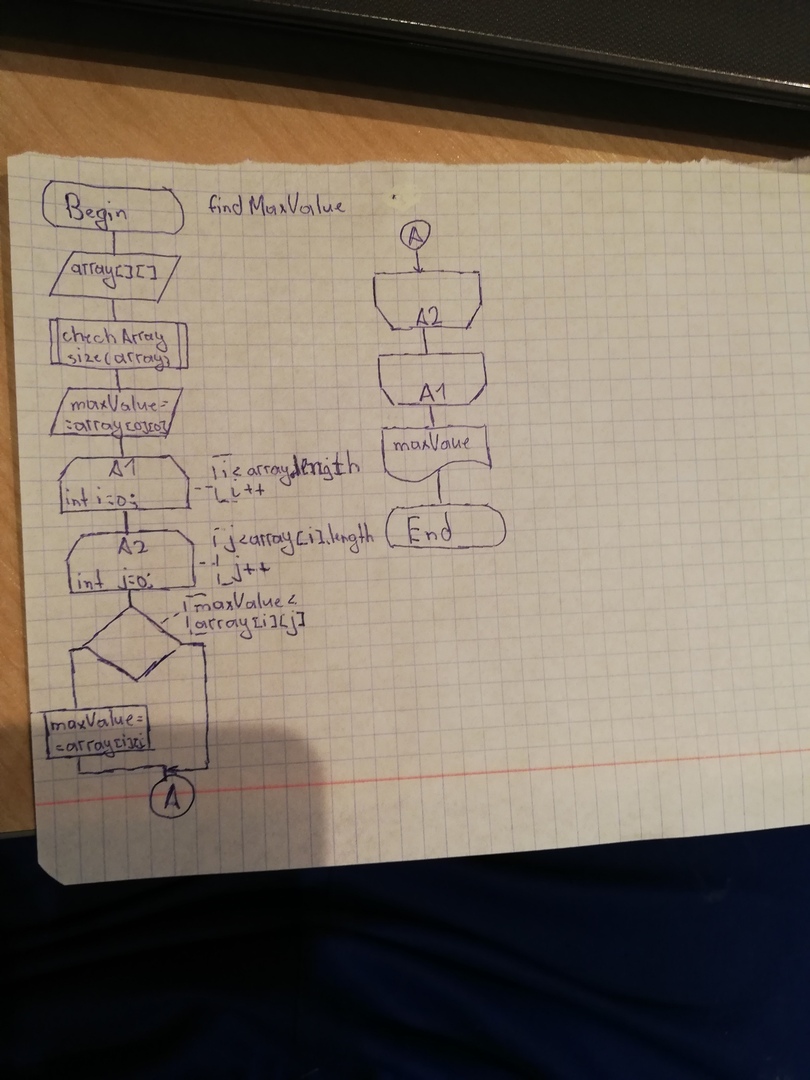 Begin
findMaxValue
array[][]
chechArray
size(array)
maxValue=
=array[0][0]
A1
int i=0;
i<array.length
i++
A2
int j=0;
j<array[i].length
j++
maxValue<
array[i][j]
maxValue=
=array[i][j
A
A
A2
A1
maxVaue
End